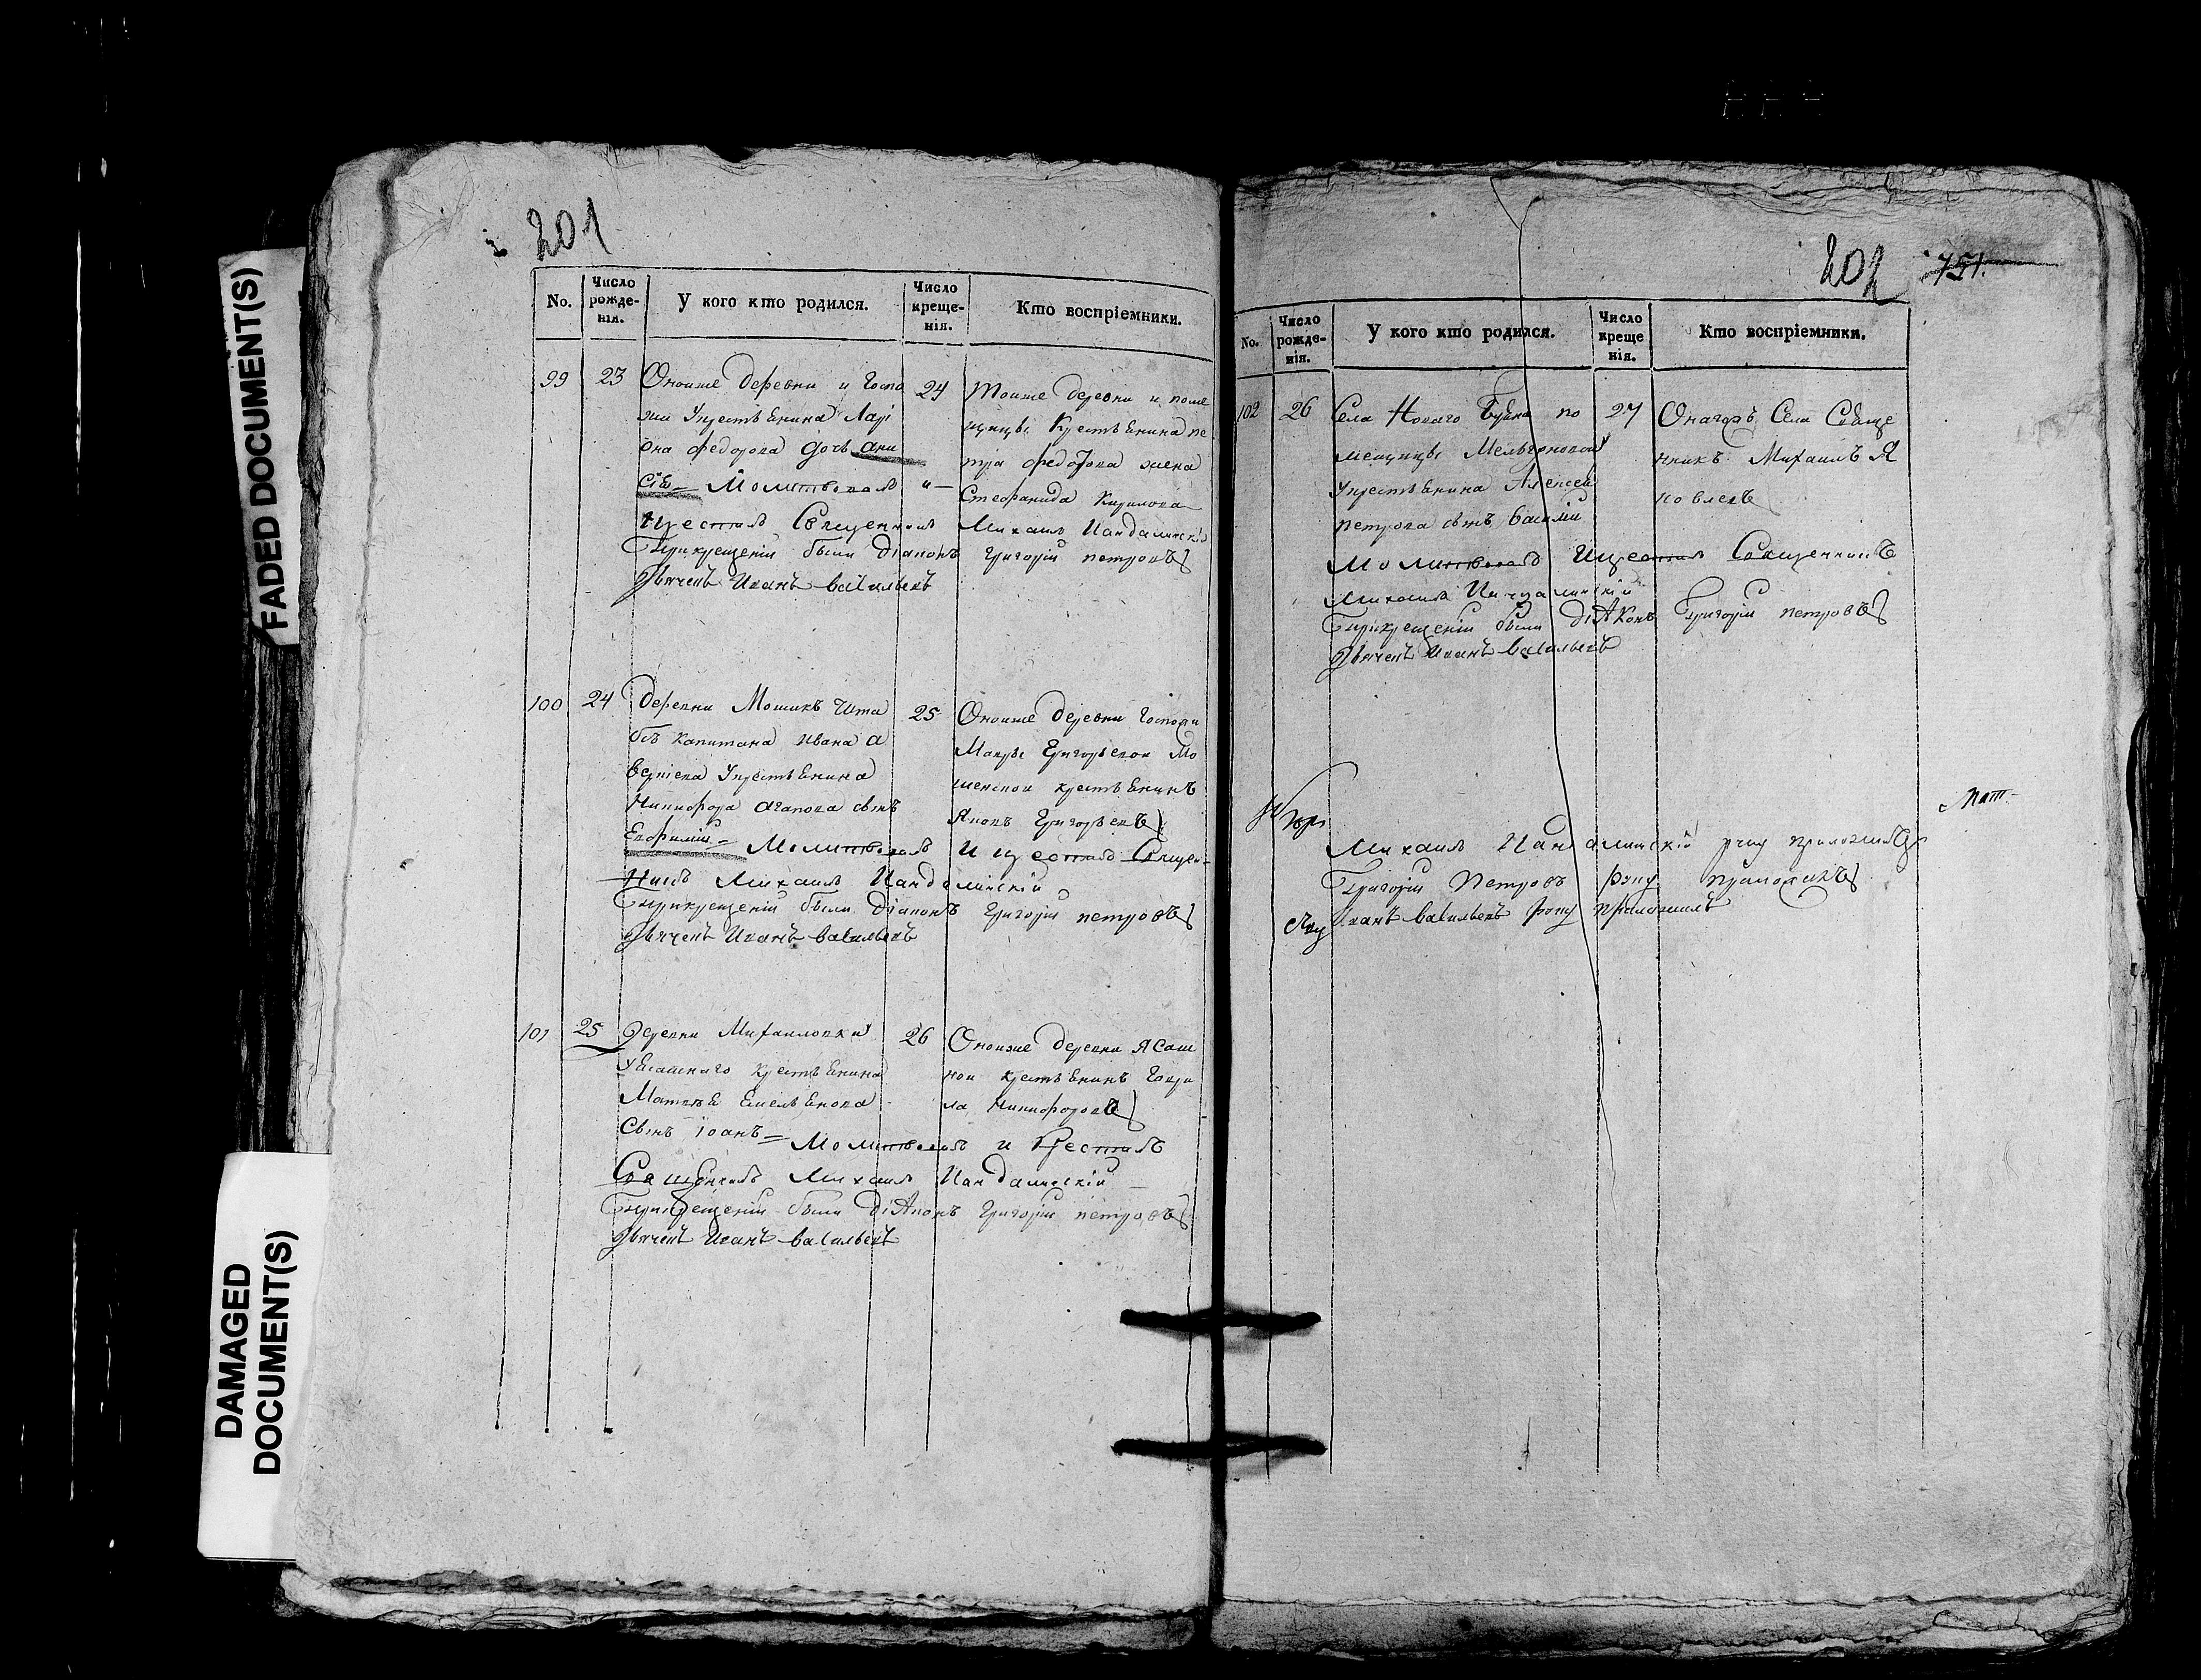 FADED DOCUMENT(S)
DAMAGED
DOCUMENT(S)
201
No.
Число
рожде-
нія.
У кого кто родился.
Число
креще-
нія.
Кто воспріемники.
99 23 Оноиже деревни и Госпо
жи Укрестьянина Ларі
она федорова дочь ани
сія = Молитвовалъ и
Крестилъ Священникъ Михаилъ
При крещеніи были діаконъ Григорій петровъ
Дьячекъ Иванъ васильевъ
24 Тоиже деревни и поме
щицы Крестьянина пе
тра федотова жена
Стефанида Кирилова
100 24 Деревни Мошикъ Шта
бсъ капитана Ивана а
Укрестьянина
Никифора агапова сынъ
Евфимій = Молитвовалъ И крестилъ Священ-
никъ Михаилъ
При крещеніи были діаконъ Григорій петровъ
Дьячекъ Иванъ васильевъ
25 Оноиже деревни Госпожи
Мавры Григорьевои Мо
шенскои крестьянинъ
Яковъ Григорьевъ
101 25 Деревни Михаиловки
Уясашнаго крестьянина
Матвѣя Емельянова
Сынъ Іоанъ = Молитвовалъ и Крестилъ
Священникъ Михаилъ
При крещеніи были діаконъ Григорій петровъ
Дьячекъ Иванъ васильевъ
26 Оноиже деревни Ясаш
нои крестьянинъ Гаври
ла Никифоровъ
202 751.
No.
Число
рожде-
нія.
У кого кто родился.
Число
креще
нія.
Кто воспріемники.
102 26 Села Новаго по
мещицы
Укрестьянина Алексея
петрова сынъ Василій
Молитвовалъ Икрестилъ Священникъ
Михаилъ
При крещеніи были діаконъ Григорій петровъ
Дьячекъ Иванъ васильевъ
27 Онагожъ Села Свяще
нникъ Михаилъ Я
ковлевъ
Михаилъ руку приложилъ
Григорій Петровъ руку приложилъ
Иванъ васильевъ руку приложилъ